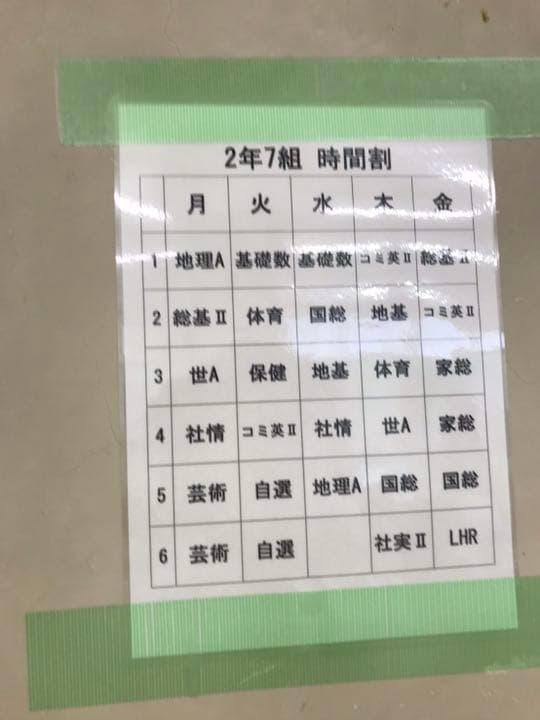 2年7組 時間割
月 火 水 木 金
1 地理A 基礎数 基礎数 コミ英Ⅱ 総基Ⅱ
2 総基Ⅱ 体育 国総 地基 コミ英Ⅱ
3 世A 保健 地基 体育 家総
4 社情 コミ英Ⅱ 社情 世A 家総
5 芸術 自選 地理A 国総 国総
6 芸術 自選 社実Ⅱ LHR